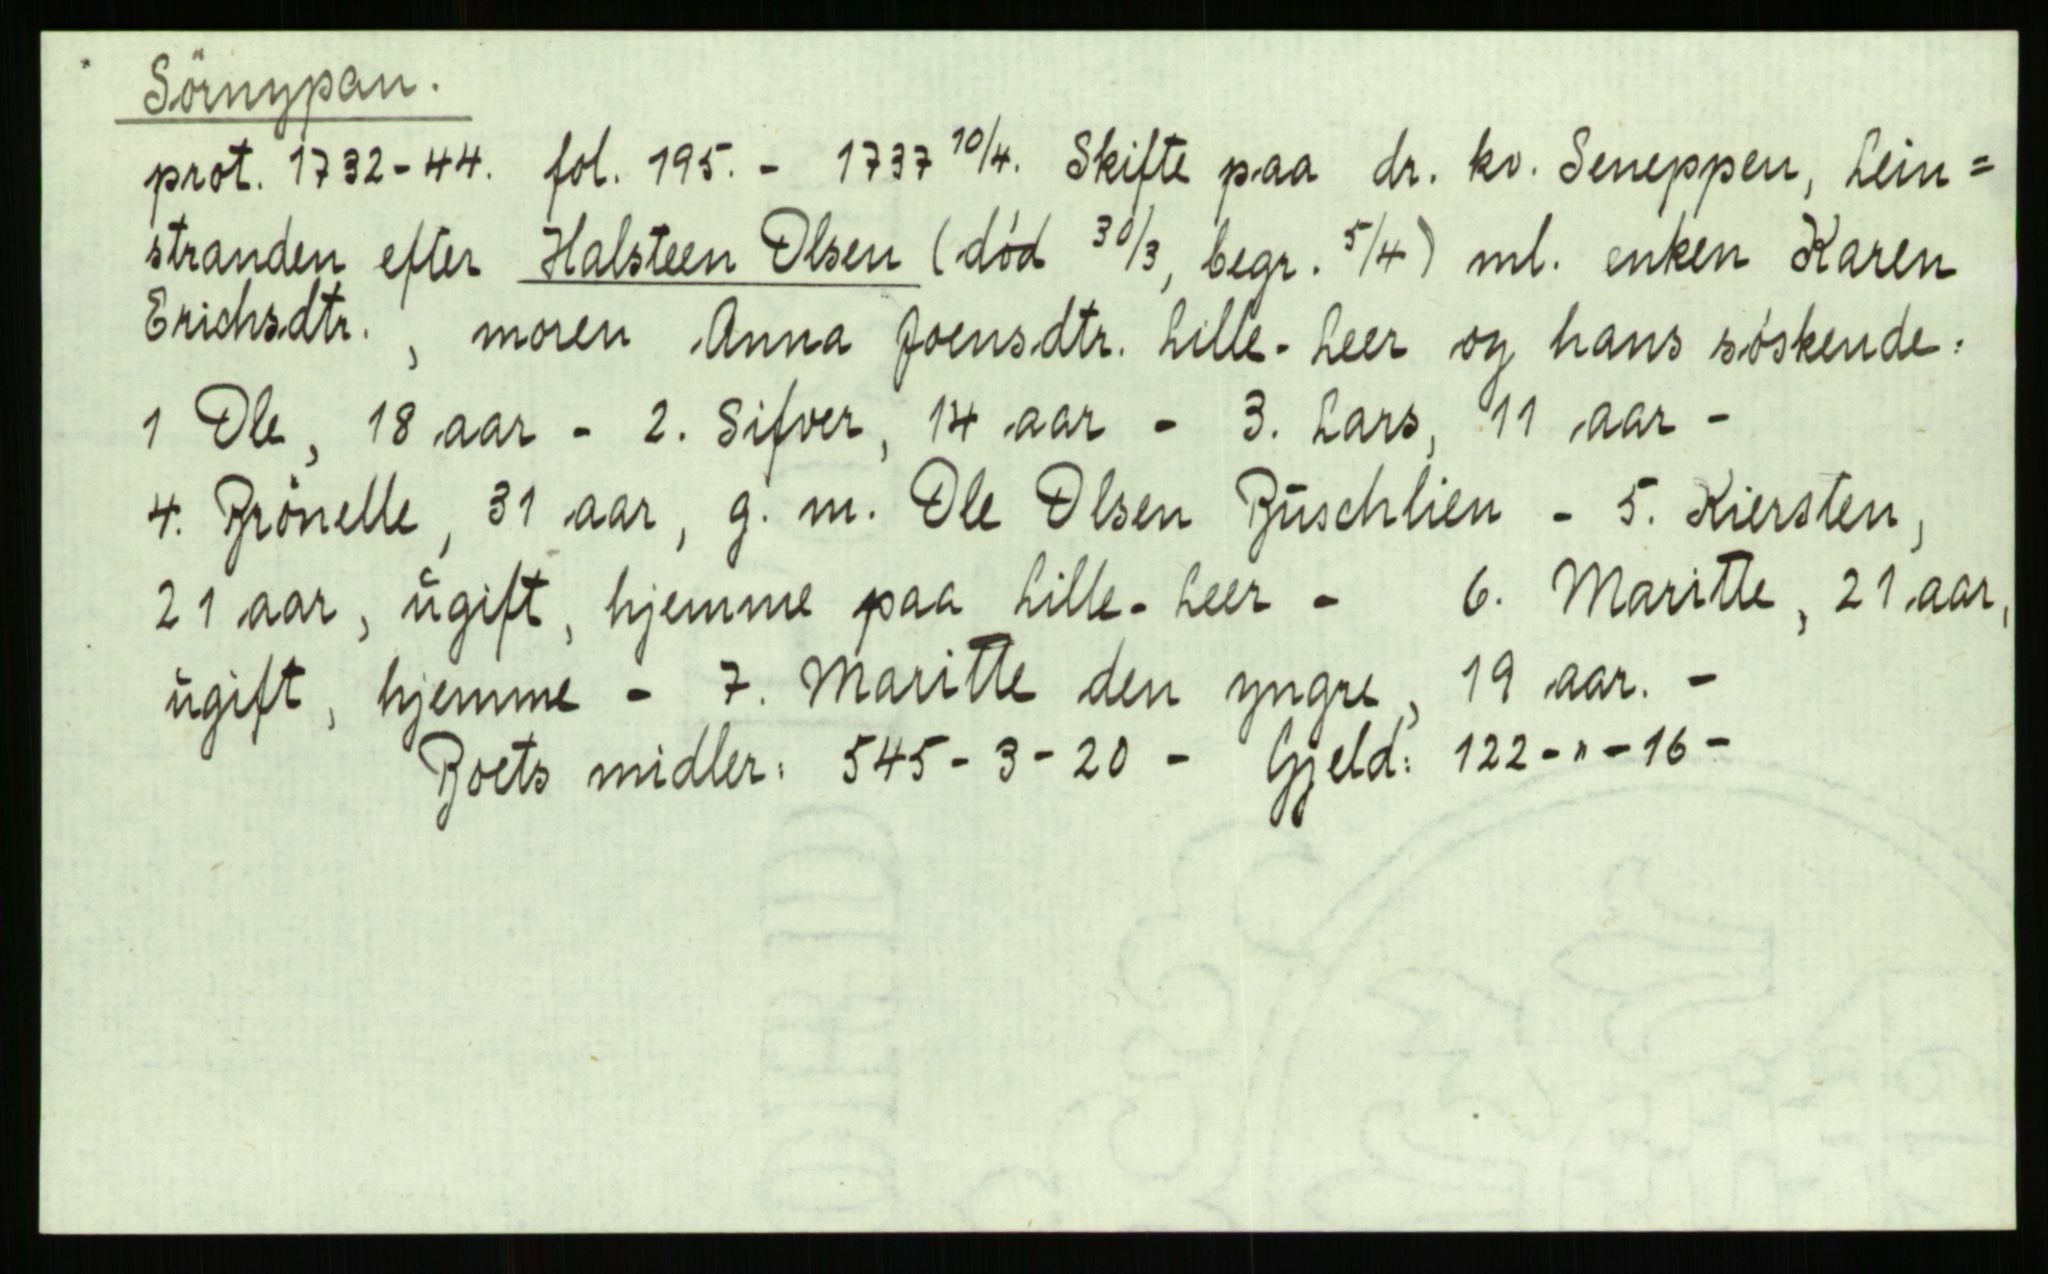 Sörnypan.
prot. 1732-44. fol. 195. - 1737 10/4. Skifte paa dr. kv. Seneppen, Lein=
stranden efter Halsteen Olsen (död 30/3, begr. 5/4) ml. enken Karen
Erichsdtr., moren Anna Joensdtr. Lille-Leer og hans söskende:
1 Ole, 18 aar - 2. Sifver, 14 aar - 3. Lars, 11 aar -
4. Brönelle, 31 aar, g. m. Ole Olsen Buschlien - 5. Kiersten,
21 aar, ugift, hjemme paa Lille-Leer - 6. Maritte, 21 aar,
ugift, hjemme - 7. Maritte den yngre, 19 aar. -
Boets midler: 545-3-20 - Gjeld: 122-"-16-